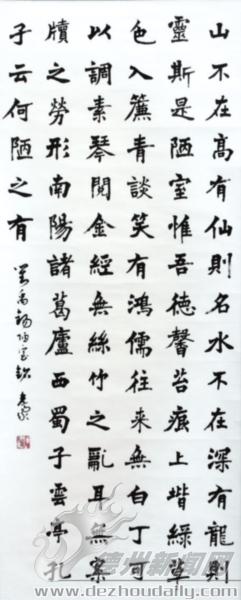 山不在高有仙則名水不在深有龍則
靈斯是陋室惟吾德馨苔痕上堦綠草
色入簾青談笑有鴻儒往來無白丁可
以調素琴閱金經無絲竹之亂耳無案
牘之勞形南陽諸葛廬西蜀子雲亭孔
子云何陋之有
劉禹錫陋室銘
德州新闻网
www.dezhoudaily.com